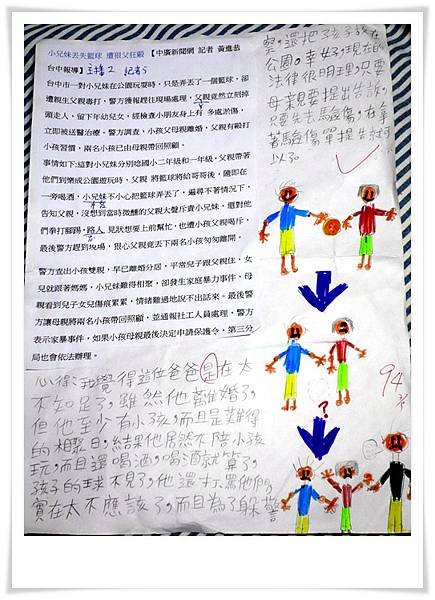 小兄妹丟失籃球 遭狠父狂毆 【中廣新聞網 記者 黃進恭
台中報導】
台中市一對小兄妹在公園玩耍時，只是弄丟了一個籃球，卻
遭親生父親毒打，警方獲報趕往現場處理，父親竟然立刻掉
頭走人，留下年幼兒女，經檢查小朋友身上有 多處淤傷，
立即被送醫治療。警方調查，小孩父母親離婚，父親有毆打
小孩習慣，兩名小孩已由母親帶回照顧。
事情如下:這對小兄妹分別唸國小二年級和一年級，父親帶著
他們到樂成公園遊玩時，父親 將籃球將給哥哥後，隨即在
一旁喝酒，小兄妹不小心把籃球弄丟了，遍尋不著情況下，
告知父親，沒想到當時微醺的父親大聲斥責小兄妹，還對他
們拳打腳踢，路人 見狀想要上前幫忙，也遭小孩父親喝斥，
最後警方趕到現場，狠心父親竟丟下兩名小孩匆匆離開。
警方查出小孩雙親，早已離婚分居，平常兒子跟父親住，女
兒就跟著媽媽，小兄妹難得相聚，卻發生家庭暴力事件，母
親看到兒子女兒傷痕累累，情緒難過地說不出話來。最後警
方讓母親將兩名小孩帶回照顧，並通報社工人員處理，警方
表示家暴事件，如果小孩母親最後決定申請保護令，第三分
局也會依法辦理。
心得:我覺得這位爸爸是在太
不知足了，雖然他離婚了，
但他至少有小孩，而且是難得
的相聚日，結果他居然不陪小孩
玩，而且還喝酒，喝酒就算了，
孩子的球不見了，他還打罵他們，
實在太不應該了，而且為了躲警
察，還把孩子放在
公園。幸好，現在的
法律很明理，只要
母親要提出告訴，
只要先去驗傷，在拿
著驗傷單提告就可
以了。
?
94